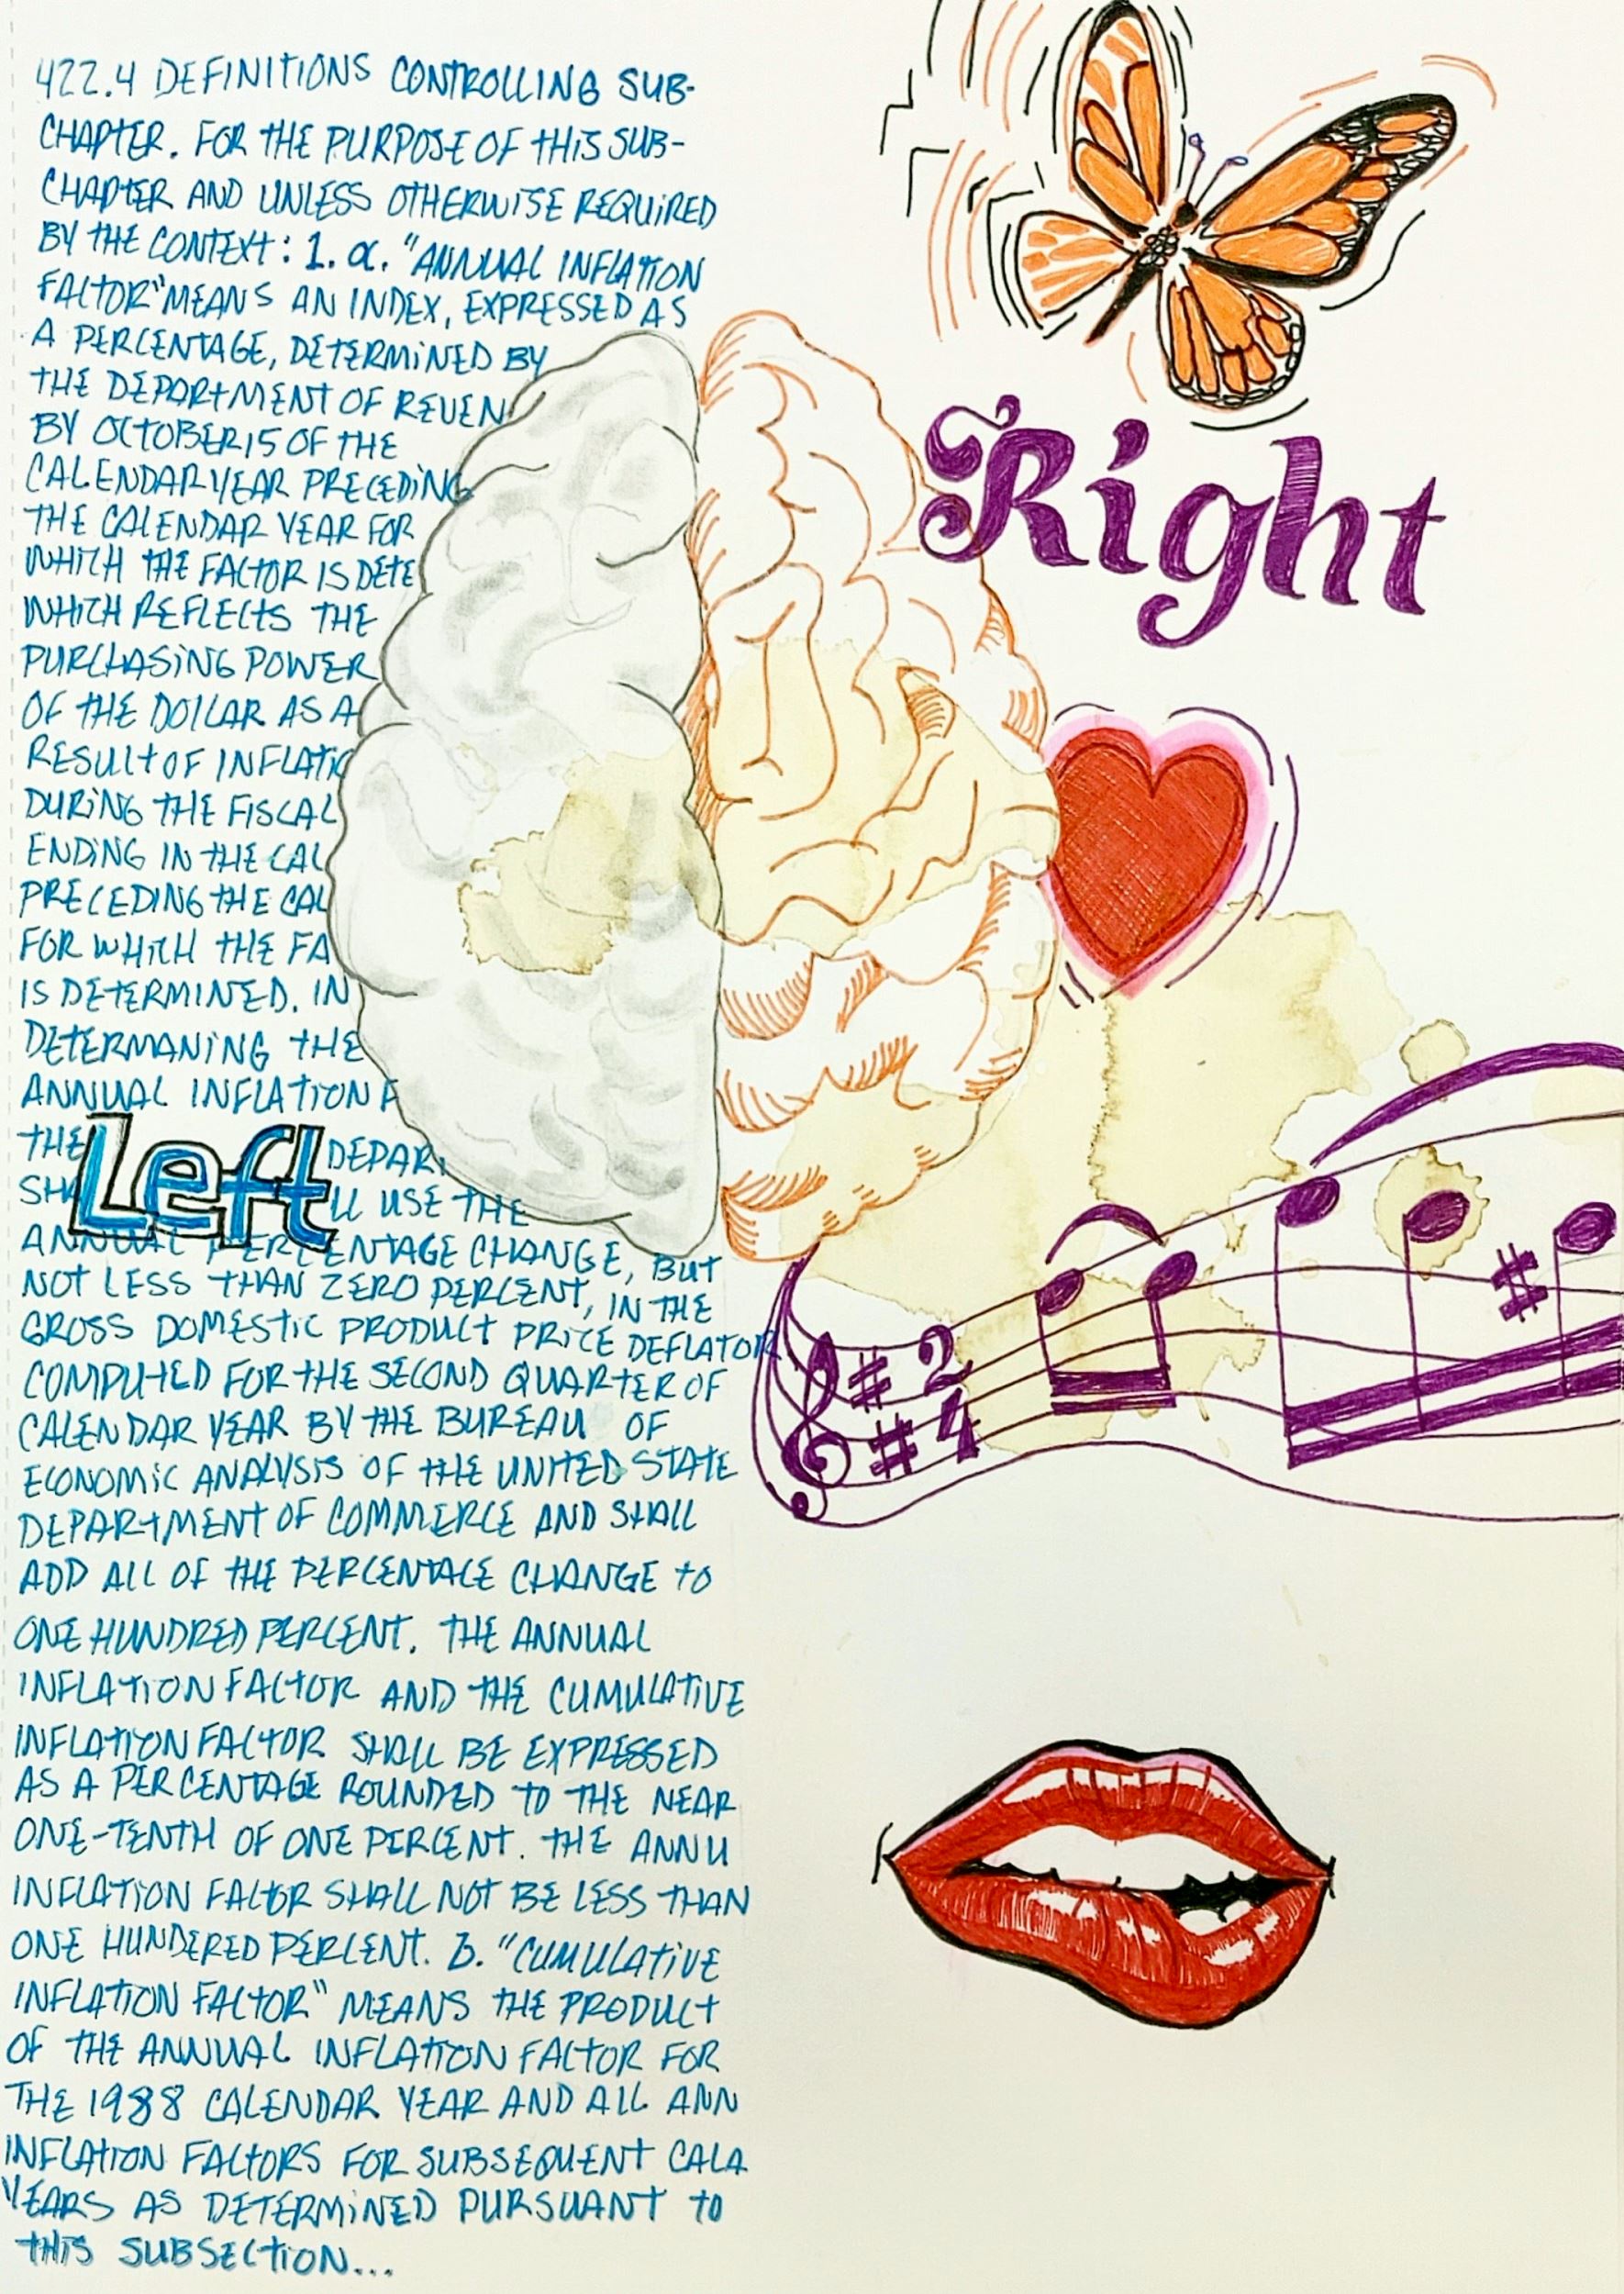 422.4 DEFINITIONS CONTROLLING SUB-
CHAPTER. FOR THE PURPOSE OF THIS SUB-
CHAPTER AND UNLESS OTHERWISE REQUIRED
BY THE CONTEXT: 1. a. "ANNUAL INFLATION
FACTOR" MEANS AN INDEX, EXPRESSED AS
A PERCENTAGE, DETERMINED BY
THE DEPARTMENT OF REVEN
BY OCTOBER 15 OF THE
CALENDAR YEAR PRECEDING
THE CALENDAR YEAR FOR
WHICH THE FACTOR IS DETE
WHICH REFLECTS THE
PURCHASING POWER
OF THE DOLLAR AS A
RESULT OF INFLATIO
DURING THE FISCAL
ENDING IN THE CAL
PRECEDING THE CAL
FOR WHICH THE FA
IS DETERMINED. IN
DETERMANING THE
ANNUAL INFLATION F
THE DEPAR
SHA LL USE THE
ANNUAL PERCENTAGE CHANGE, BUT
NOT LESS THAN ZERO PERCENT, IN THE
GROSS DOMESTIC PRODUCT PRICE DEFLATOR
COMPUTED FOR THE SECOND QUARTER OF
CALENDAR YEAR BY THE BUREAU OF
ECONOMIC ANALYSIS OF THE UNITED STATE
DEPARTMENT OF COMMERCE AND SHALL
ADD ALL OF THE PERCENTAGE CHANGE TO
ONE HUNDRED PERCENT. THE ANNUAL
INFLATION FACTOR AND THE CUMULATIVE
INFLATION FACTOR SHALL BE EXPRESSED
AS A PERCENTAGE ROUNDED TO THE NEAR
ONE-TENTH OF ONE PERCENT. THE ANNU
INFLATION FACTOR SHALL NOT BE LESS THAN
ONE HUNDERED PERCENT. b. "CUMULATIVE
INFLATION FACTOR" MEANS THE PRODUCT
OF THE ANNUAL INFLATION FACTOR FOR
THE 1988 CALENDAR YEAR AND ALL ANN
INFLATION FACTORS FOR SUBSEQUENT CALA
YEARS AS DETERMINED PURSUANT TO
THIS SUBSECTION...
Left
Right
2
4